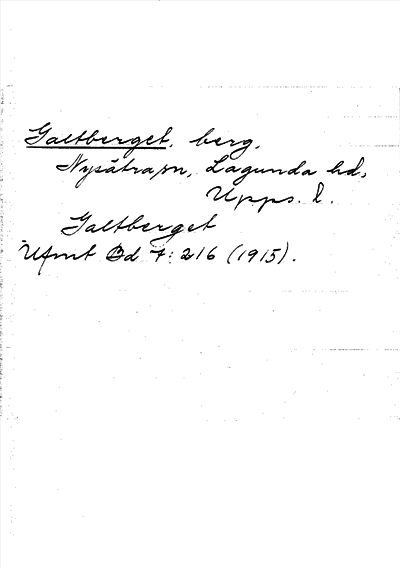 Galtberget, berg,
Nysätra sn, Lagunda hd,
Upps. l.
Galtberget
Ufmt Bd 7: 216 (1915).